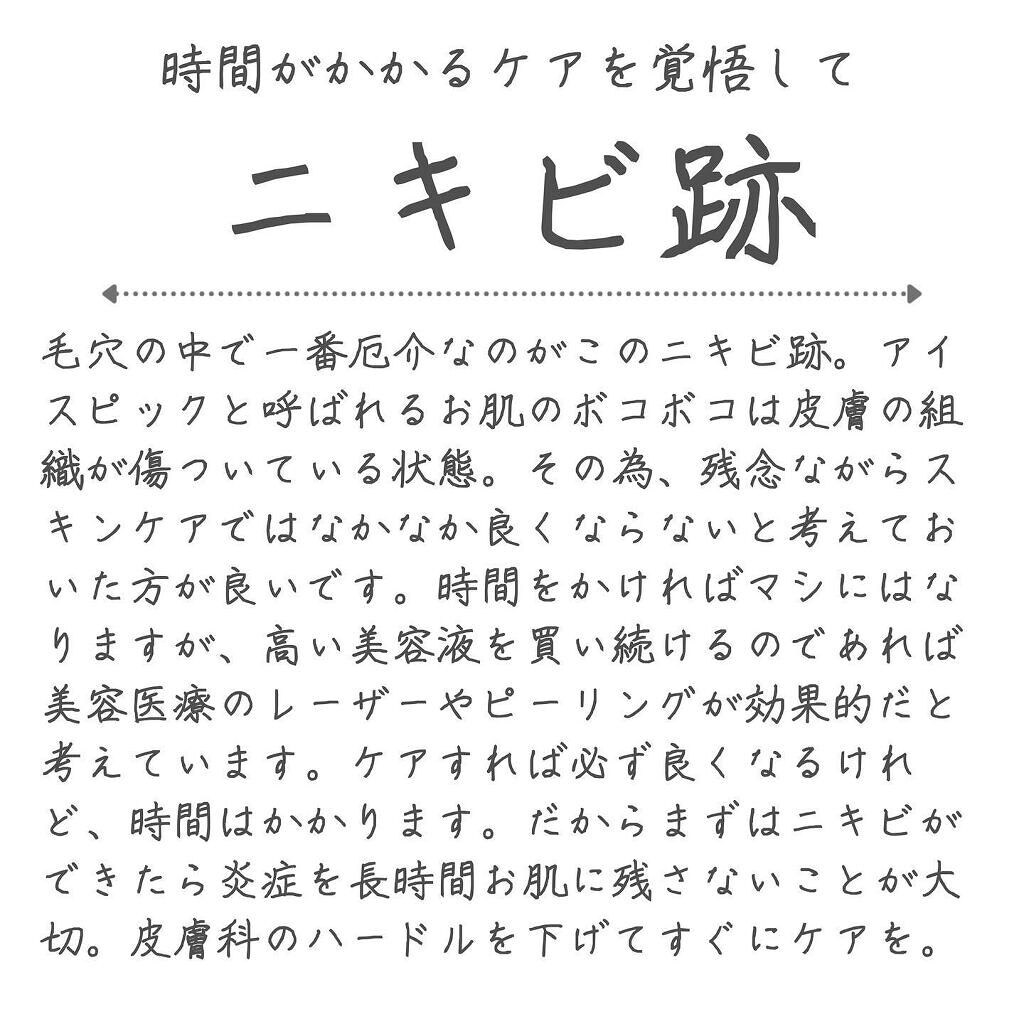 時間がかかるケアを覚悟して
ニキビ跡
毛穴の中で一番厄介なのがこのニキビ跡。アイ
スピックと呼ばれるお肌のボコボコは皮膚の組
織が傷ついている状態。その為、残念ながらス
キンケアではなかなか良くならないと考えてお
いた方が良いです。時間をかければマシにはな
りますが、高い美容液を買い続けるのであれば
美容医療のレーザーやピーリングが効果的だと
考えています。ケアすれば必ず良くなるけれ
ど、時間はかかります。だからまずはニキビが
できたら炎症を長時間お肌に残さないことが大
切。皮膚科のハードルを下げてすぐにケアを。